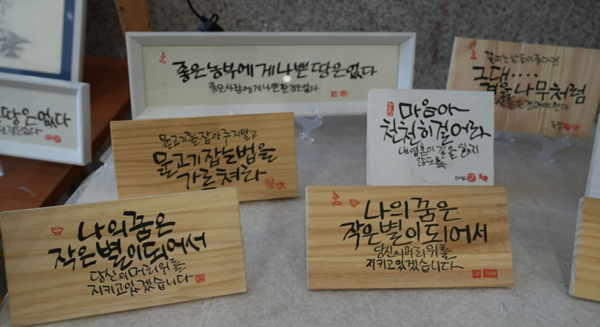 좋은 농부에게 나쁜 땅은 없다
땅은 없다
그대....
겨울나무처럼
마음아
천천히 걸어라
내 영혼이 길을 잃지
않도록
물고기를 잡아 주지 말고
물고기 잡는 법을
가르쳐라
나의 꿈은
작은 별이 되어서
당신의 머리 위를
지키고 있겠습니다
나의 꿈은
작은 별이 되어서
당신의 머리 위를
지키고 있겠습니다